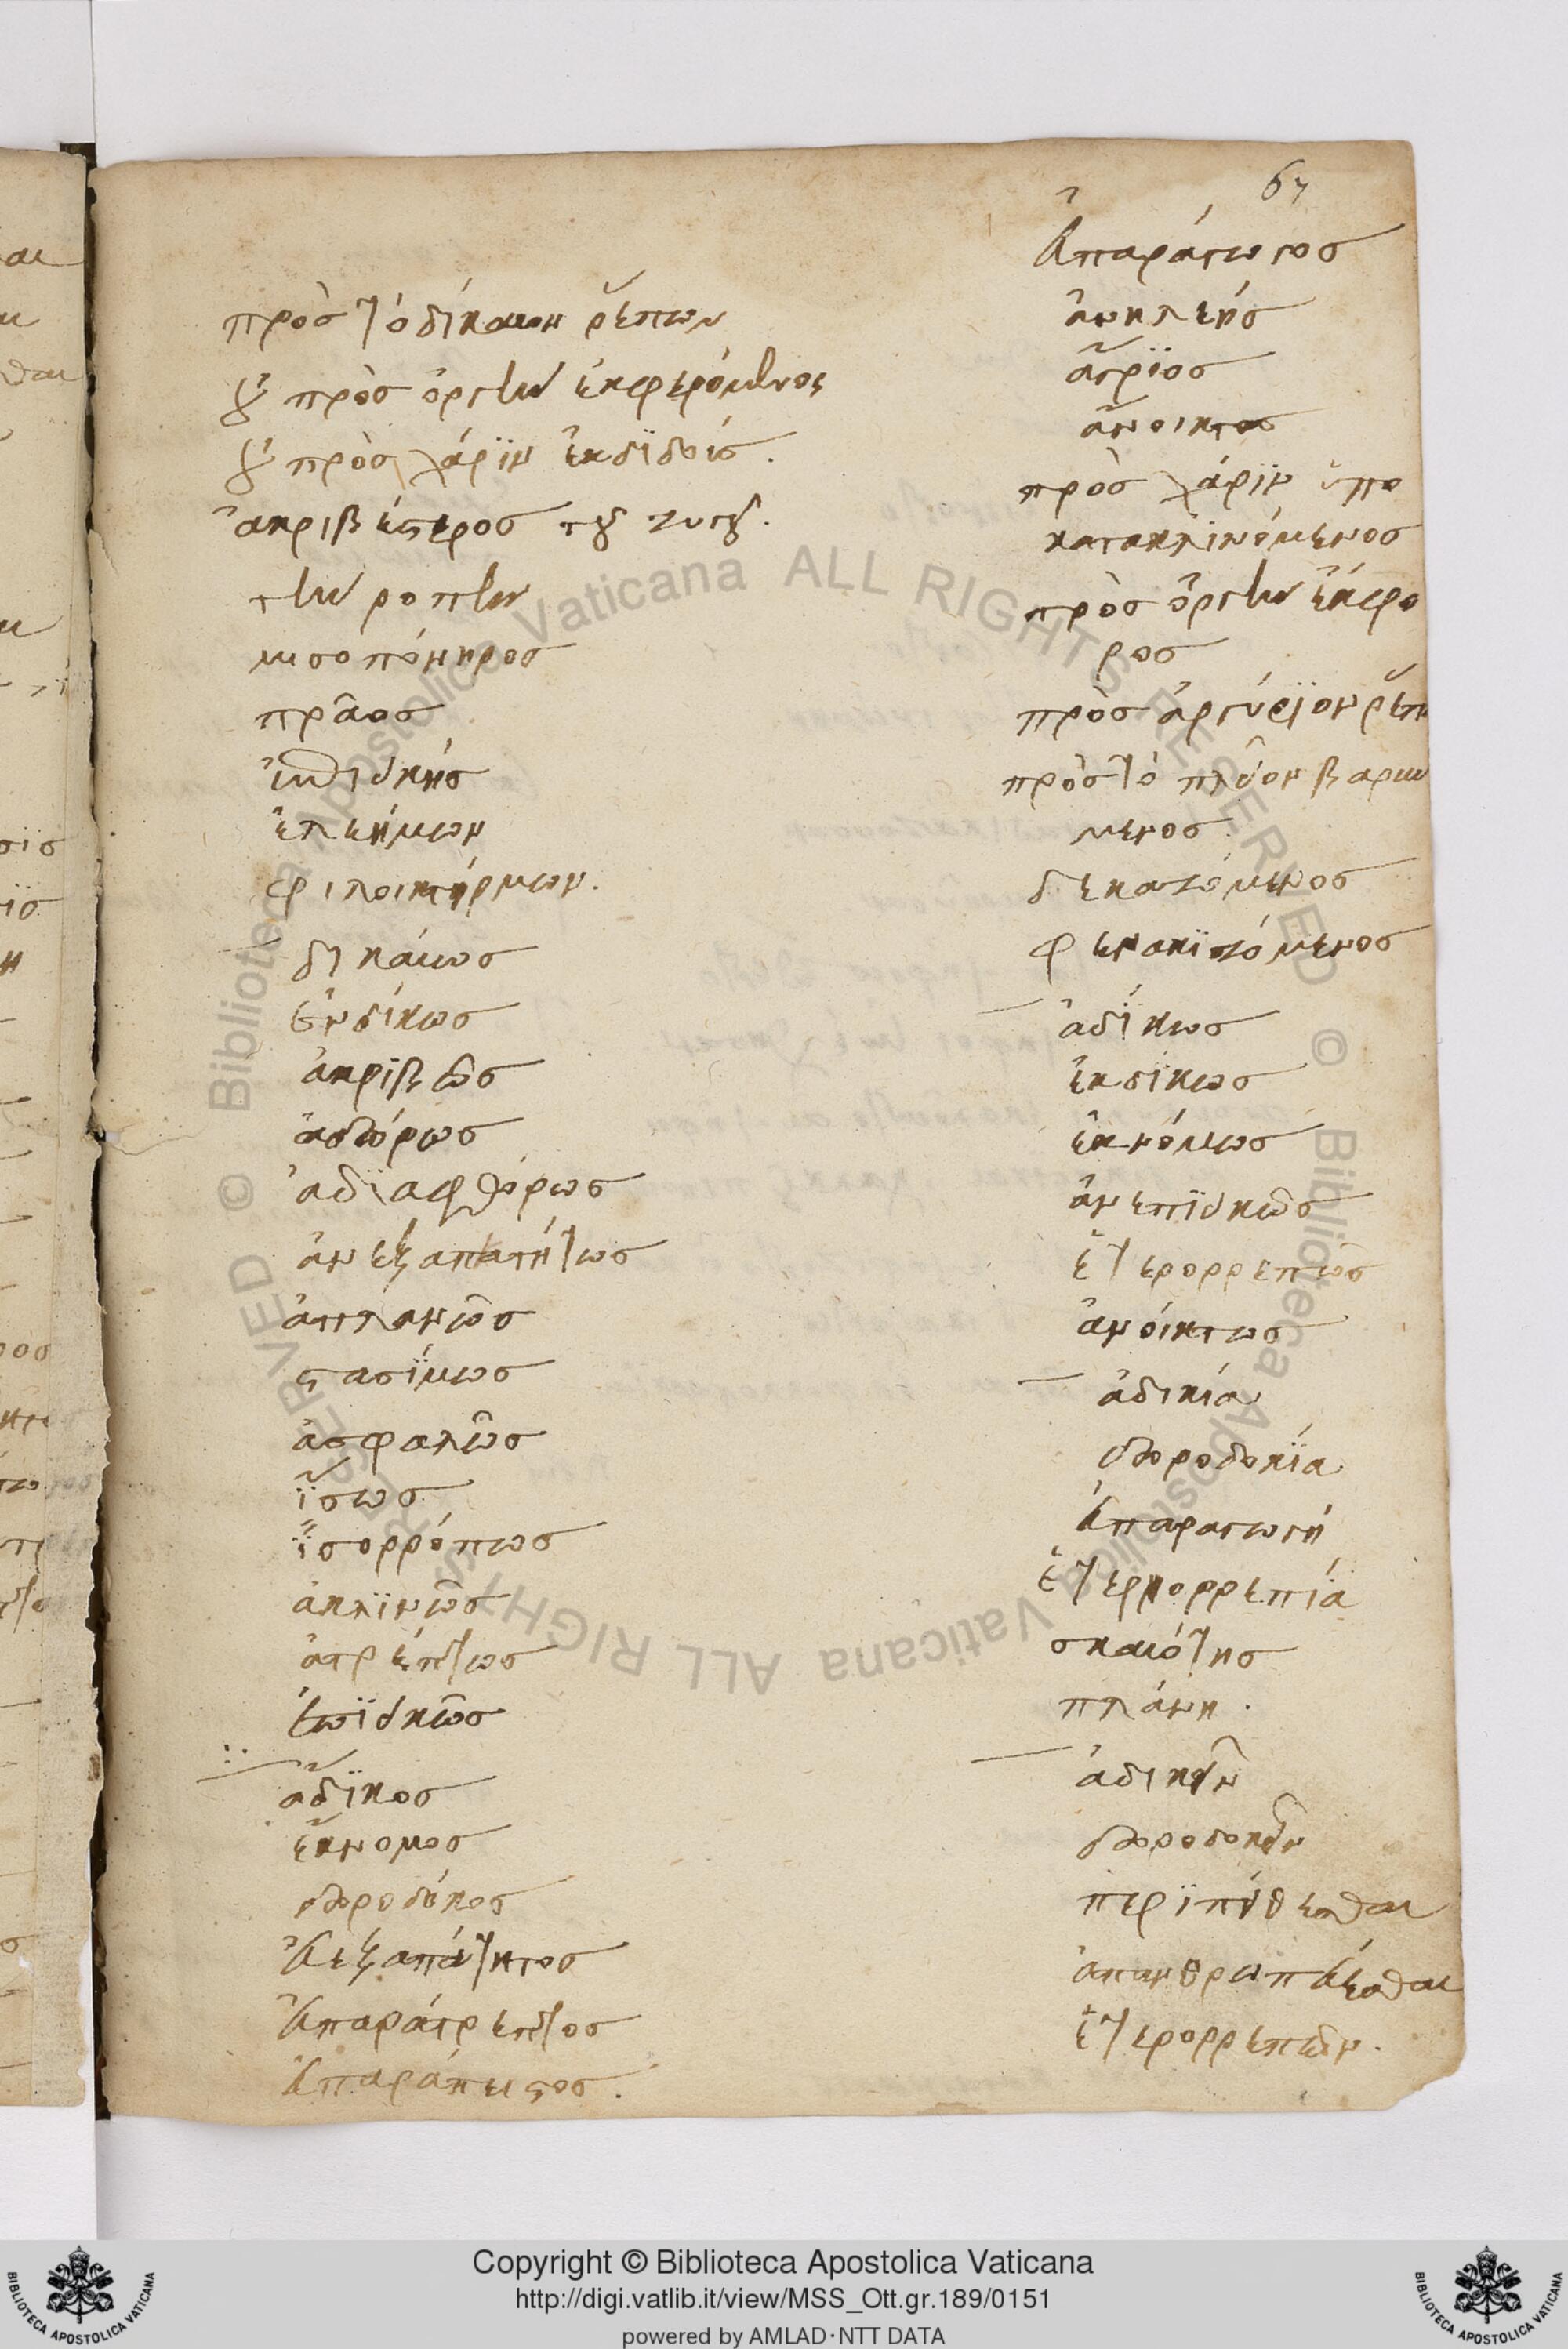 67
πρὸς τὸ δίκαιον ῥέπων
οὐ πρὸς ὀργὴν ἐκφερόμενος
οὐ πρὸς χάριν ἐκδιδούς.
ἀκριβέστερος τοῦ ζυγοῦ.
τὴν ροπὴν
μισοπόνηρος
πρᾶος
ἐπιεικής
ἐλεήμων
φιλοικτίρμων.
δικαίως
ἐνδίκως
ἀκριβῶς
ἀδώρως
ἀδιαφθόρως
ἀνεξαπατήτως
ἀπλανῶς
στασίμως
ἀσφαλῶς
ἴσως
ἰσορρόπως
ἀκλινῶς
ἀτρέπτως
ἐπιεικῶς
ἄδικος
ἔκνομος
δωροδόκος
εὐεξαπάτητος
εὐπαράτρεπτος
εὐπαράπειστος.
εὐπαράγωγος
ἀνηλεής
ἄγριος
ἄνοικτος
πρὸς χάριν ὑπο
κατακλινόμενος
πρὸς ὀργὴν ἔκφο
ρος
πρὸς ἀργύριον ῥέπων
πρὸς τὸ πλέον βαρυν
μενος.
δεκαζόμενος
φενακιζόμενος
ἀδίκως
ἐκδίκως
ἐκνόμως
ἀνεπιεικῶς
ἑτερορρεπῶς
ἀνοίκτως
ἀδικία
δωροδοκία
εὐπαραγωγή
ἑτερορρεπία
σκαιότης
πλάνη.
ἀδικεῖν
δωροδοκεῖν
ἀπανθρωπεύεσθαι
ἑτερορρεπεῖν.
Copyright © Biblioteca Apostolica Vaticana
http://digi.vatlib.it/view/MSS_Ott.gr.189/0151
powered by AMLAD·NTT DATA
© Biblioteca Apostolica Vaticana ALL RIGHTS RESERVED
© Biblioteca Apostolica Vaticana ALL RIGHTS RESERVED
BIBLIOTECA APOSTOLICA VATICANA
BIBLIOTECA APOSTOLICA VATICANA